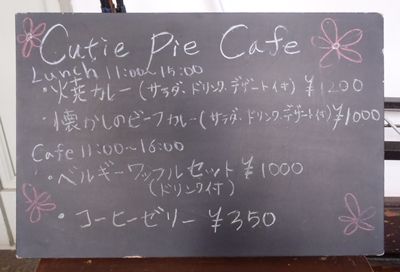 Cutie Pie Cafe
Lunch 11:00~15:00
・火焼カレー(サラダ、ドリンク、デザート付) ¥1200
・懐かしのビーフカレー(サラダ、ドリンク、デザート付) ¥1000
Cafe 11:00~16:00
・ベルギーワッフルセット ¥1000
(ドリンク付)
・コーヒーゼリー ¥350